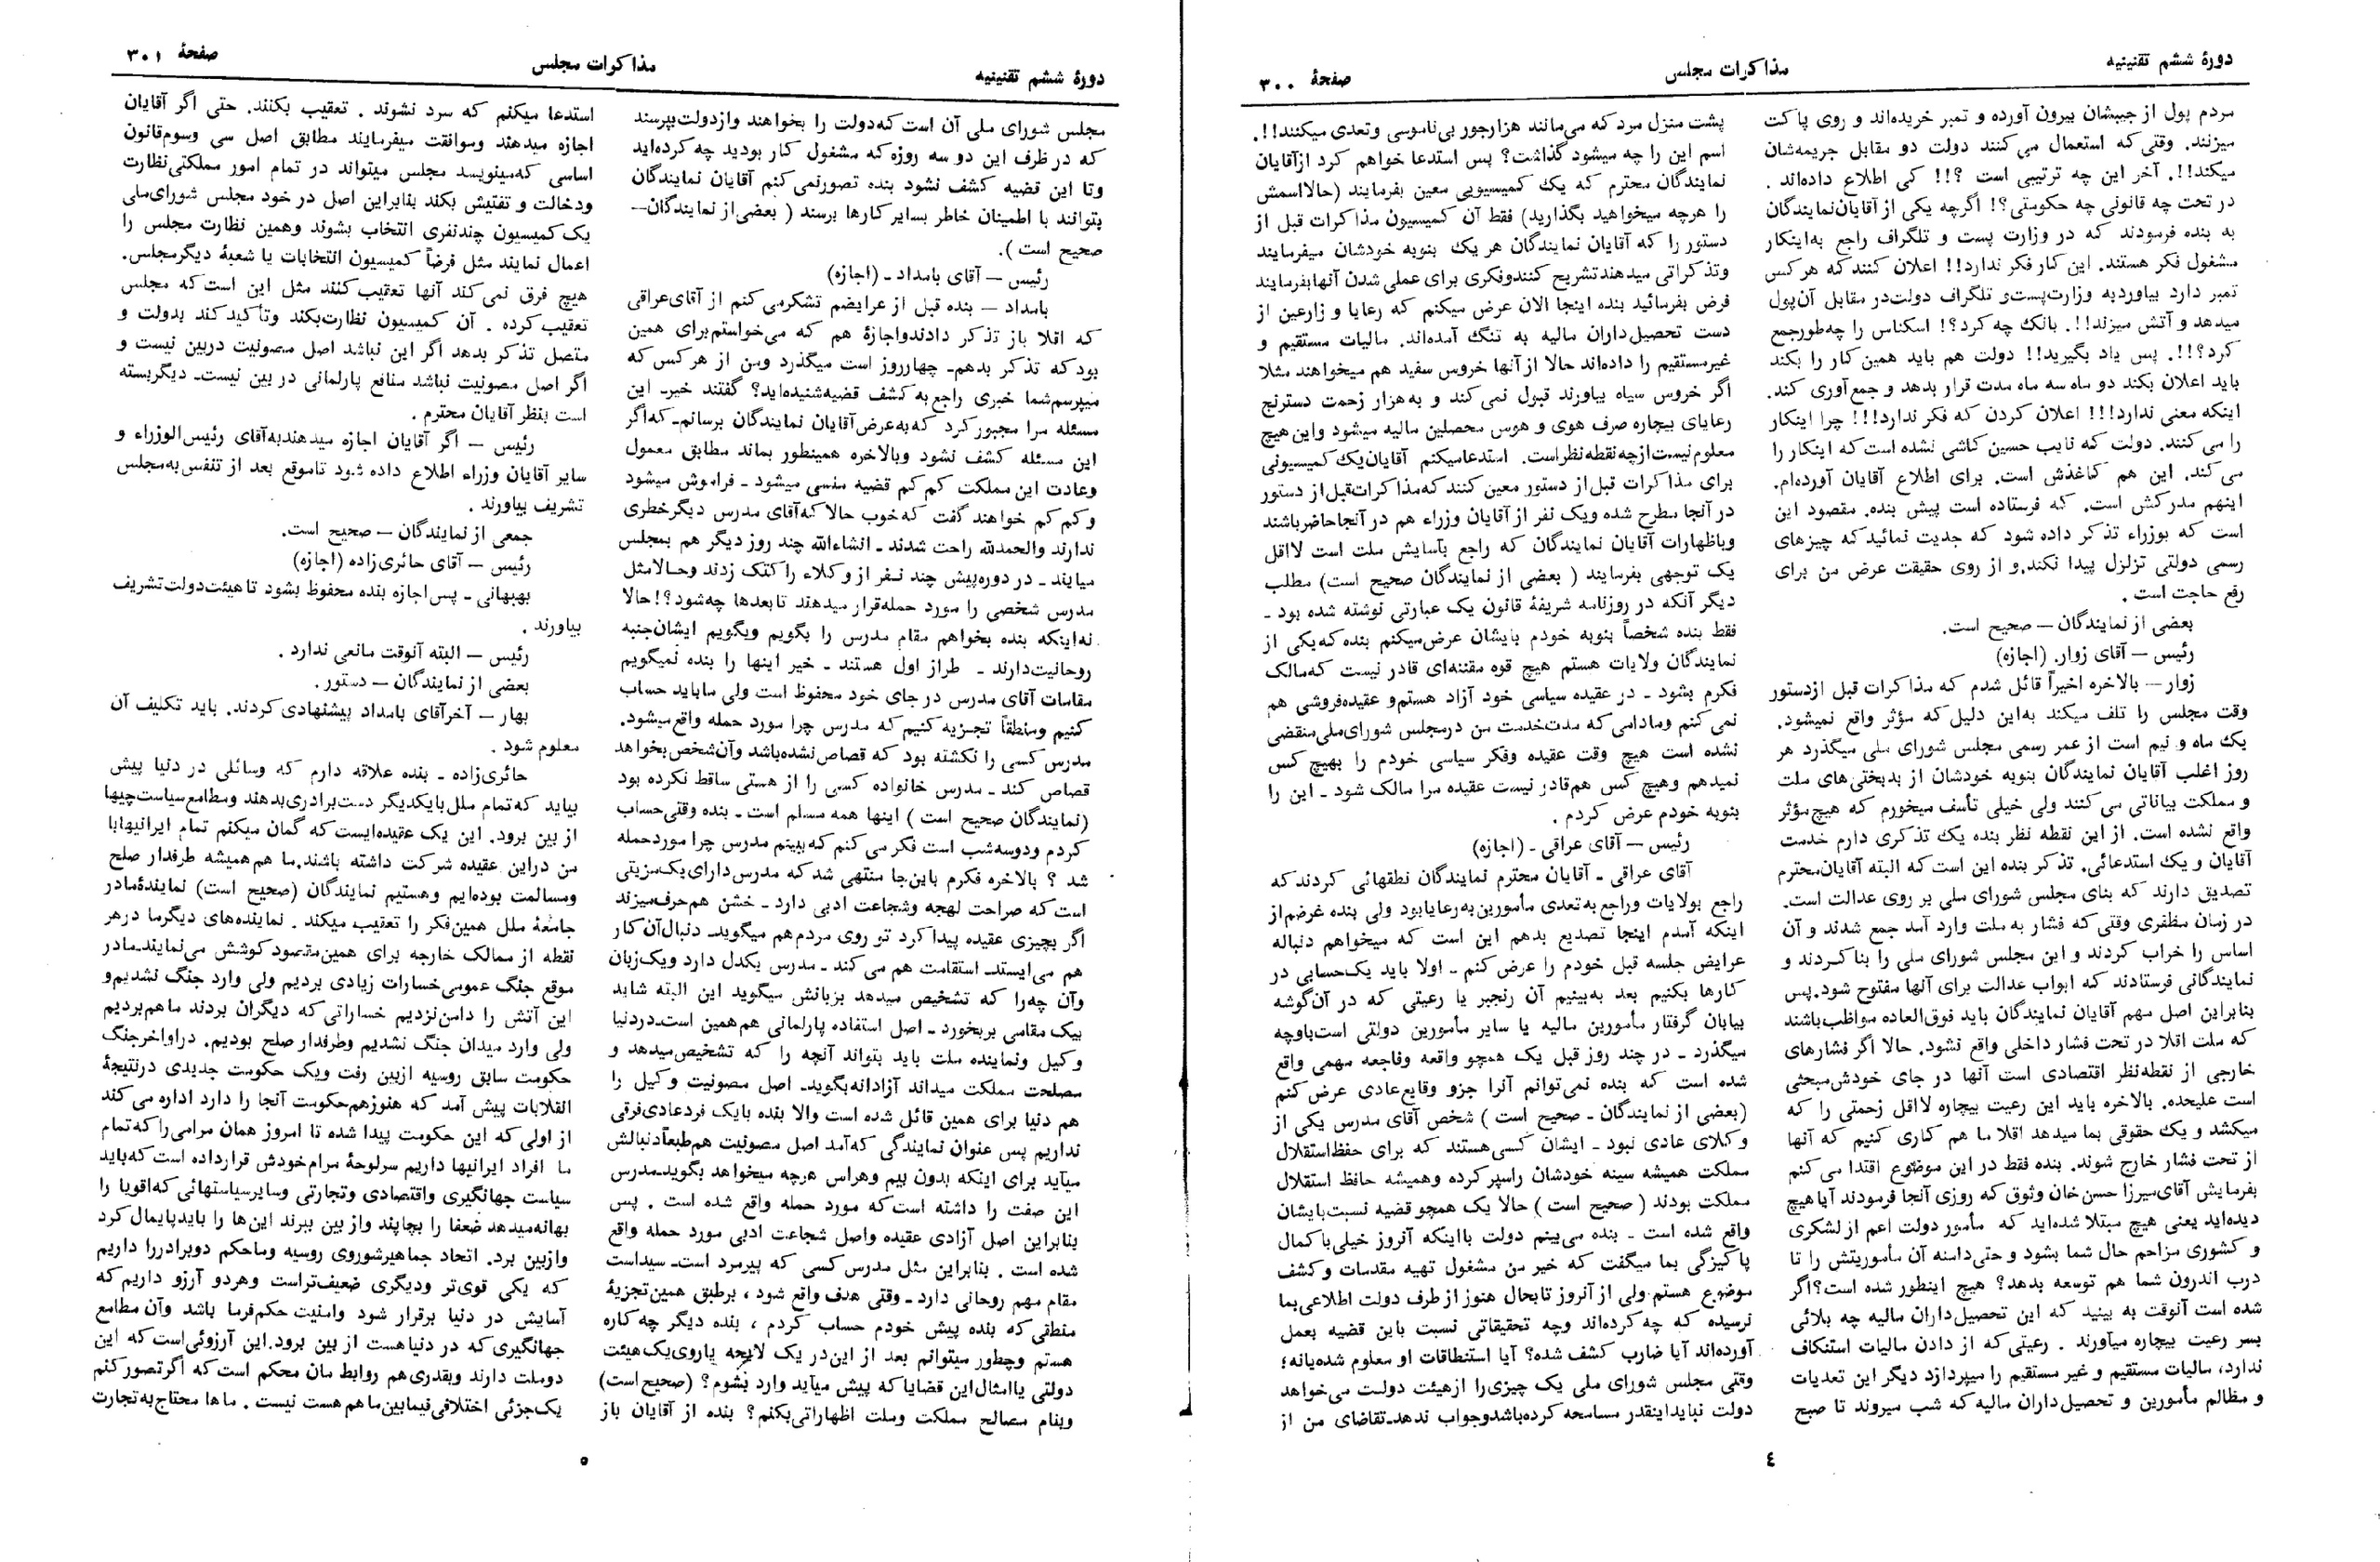 دورهٔ ششم تقنینیه
مذاکرات مجلس
صفحهٔ ۳۰۰
مردم پول از جیبشان بیرون آورده و تمبر خریده‌اند و روی پاکت
میزنند. وقتی که استعمال می کنند دولت دو مقابل جریمه‌شان
میکند!!. آخر این چه ترتیبی است ؟!! کی اطلاع داده‌اند .
در تحت چه قانونی چه حکومتی؟! اگرچه یکی از آقایان نمایندگان
به بنده فرمودند که در وزارت پست و تلگراف راجع به اینکار
مشغول فکر هستند. این کار فکر ندارد!! اعلان کنند که هر کس
تمبر دارد بیاورد به وزارت پست و تلگراف دولت در مقابل آن پول
میدهد و آتش میزند!!. بانک چه کرد؟! اسکناس را چه طور جمع
کرد؟!!. پس یاد بگیرید!! دولت هم باید همین کار را بکند
باید اعلان بکند دو ماه سه ماه مدت قرار بدهد و جمع آوری کند.
اینکه معنی ندارد!!! اعلان کردن که فکر ندارد!!! چرا اینکار
را می کنند. دولت که نایب حسین کاشی نشده است که اینکار را
می کند. این هم کاغذش است. برای اطلاع آقایان آورده‌ام.
اینهم مدرکش است. که فرستاده است پیش بنده. مقصود این
است که بوزراء تذکر داده شود که جدیت نمائید که چیزهای
رسمی دولتی تزلزل پیدا نکند. و از روی حقیقت عرض من برای
رفع حاجت است .
بعضی از نمایندگان — صحیح است.
رئیس — آقای زوار. (اجازه)
زوار — بالاخره اخیراً قائل شدم که مذاکرات قبل از دستور
وقت مجلس را تلف میکند به این دلیل که مؤثر واقع نمیشود.
یک ماه و نیم است از عمر رسمی مجلس شورای ملی میگذرد هر
روز اغلب آقایان نمایندگان بنوبه خودشان از بدبختی‌های ملت
و مملکت بیاناتی می کنند ولی خیلی تأسف میخورم که هیچ مؤثر
واقع نشده است. از این نقطه نظر بنده یک تذکری دارم خدمت
آقایان و یک استدعائی. تذکر بنده این است که البته آقایان محترم
تصدیق دارند که بنای مجلس شورای ملی بر روی عدالت است.
در زمان مظفری وقتی که فشار به ملت وارد آمد جمع شدند و آن
اساس را خراب کردند و این مجلس شورای ملی را بنا کردند و
نمایندگانی فرستادند که ابواب عدالت برای آنها مفتوح شود. پس
بنابراین اصل مهم آقایان نمایندگان باید فوق العاده مواظب باشند
که ملت اقلا در تحت فشار داخلی واقع نشود. حالا اگر فشارهای
خارجی از نقطه نظر اقتصادی است آنها در جای خودش مبحثی
است علیحده. بالاخره باید این رعیت بیچاره لااقل زحمتی را که
میکشد و یک حقوقی بما میدهد اقلا ما هم کاری کنیم که آنها
از تحت فشار خارج شوند. بنده فقط در این موضوع اقتدا می کنم
بفرمایش آقای میرزا حسن خان وثوق که روزی آنجا فرمودند آیا هیچ
دیده‌اید یعنی هیچ مبتلا شده‌اید که مأمور دولت اعم از لشکری
و کشوری مزاحم حال شما بشود و حتی دامنه آن مأموریتش را تا
درب اندرون شما هم توسعه بدهد؟ هیچ اینطور شده است؟ اگر
شده است آنوقت به بینید که این تحصیل‌داران مالیه چه بلائی
بسر رعیت بیچاره میآورند . رعیتی که از دادن مالیات استنکاف
ندارد، مالیات مستقیم و غیر مستقیم را میپردازد دیگر این تعدیات
و مظالم مأمورین و تحصیل‌داران مالیه که شب میروند تا صبح
پشت منزل مرد که می‌مانند هزارجور بی‌ناموسی وتعدی میکنند!!.
اسم این را چه میشود گذاشت؟ پس استدعا خواهم کرد ازآقایان
نمایندگان محترم که یک کمیسیونی معین بفرمایند (حالا اسمش
را هرچه میخواهید بگذارید) فقط آن کمیسیون مذاکرات قبل از
دستور را که آقایان نمایندگان هر یک بنوبه خودشان میفرمایند
وتذکراتی میدهند تشریح کنند وفکری برای عملی شدن آنها بفرمایند
فرض بفرمائید بنده اینجا الان عرض میکنم که رعایا و زارعین از
دست تحصیل‌داران مالیه به تنگ آمده‌اند. مالیات مستقیم و
غیر مستقیم را داده‌اند حالا از آنها خروس سفید هم میخواهند مثلا
اگر خروس سیاه بیاورند قبول نمی کند و به هزار زحمت دسترنج
رعایای بیچاره صرف هوی و هوس محصلین مالیه میشود و این هیچ
معلوم نیست از چه نقطه نظر است. استدعا میکنم آقایان یک کمیسیونی
برای مذاکرات قبل از دستور معین کنند که مذاکرات قبل از دستور
در آنجا مطرح شده ویک نفر از آقایان وزراء هم در آنجا حاضر باشند
وباظهارات آقایان نمایندگان که راجع بآسایش ملت است لااقل
یک توجهی بفرمایند ( بعضی از نمایندگان صحیح است) مطلب
دیگر آنکه در روزنامه شریفهٔ قانون یک عبارتی نوشته شده بود ـ
فقط بنده شخصاً بنوبه خودم بایشان عرض میکنم بنده که یکی از
نمایندگان ولایات هستم هیچ قوه مقننه‌ای قادر نیست که مالک
فکرم بشود ـ در عقیده سیاسی خود آزاد هستم و عقیده فروشی هم
نمی کنم ومادامی که مدت خدمت من در مجلس شورای ملی منقضی
نشده است هیچ وقت عقیده وفکر سیاسی خودم را بهیچ کس
نمیدهم وهیچ کس هم قادر نیست عقیده مرا مالک شود ـ این را
بنوبه خودم عرض کردم .
رئیس — آقای عراقی ـ (اجازه)
آقای عراقی ـ آقایان محترم نمایندگان نطقهائی کردند که
راجع بولایات وراجع به تعدی مأمورین به رعایا بود ولی بنده غرضم از
اینکه آمدم اینجا تصدیع بدهم این است که میخواهم دنباله
عرایض جلسه قبل خودم را عرض کنم ـ اولا باید یک حسابی در
کارها بکنیم بعد به بینیم آن رنجبر یا رعیتی که در آن گوشه
بیابان گرفتار مأمورین مالیه یا سایر مأمورین دولتی است باوچه
میگذرد ـ در چند روز قبل یک همچو واقعه وفاجعه مهمی واقع
شده است که بنده نمی‌توانم آنرا جزو وقایع عادی عرض کنم
(بعضی از نمایندگان ـ صحیح است ) شخص آقای مدرس یکی از
وکلای عادی نبود ـ ایشان کسی هستند که برای حفظ استقلال
مملکت همیشه سینه خودشان راسپر کرده وهمیشه حافظ استقلال
مملکت بودند ( صحیح است ) حالا یک همچو قضیه نسبت بایشان
واقع شده است ـ بنده می‌بینم دولت بااینکه آنروز خیلی باکمال
پاکیزگی بما میگفت که خیر من مشغول تهیه مقدمات و کشف
موضوع هستم ولی از آنروز تابحال هنوز از طرف دولت اطلاعی بما
نرسیده که چه کرده‌اند وچه تحقیقاتی نسبت باین قضیه بعمل
آورده‌اند آیا ضارب کشف شده؟ آیا استنطاقات او معلوم شده یانه؛
وقتی مجلس شورای ملی یک چیزی را ازهیئت دولت می‌خواهد
دولت نباید اینقدر مسامحه کرده باشد وجواب ندهد ـ تقاضای من از
٤
دورهٔ ششم تقنینیه
مذاکرات مجلس
صفحهٔ ۳۰۱
مجلس شورای ملی آن است که دولت را بخواهند وازدولت بپرسند
که در ظرف این دو سه روزه که مشغول کار بودید چه کرده‌اید
وتا این قضیه کشف نشود بنده تصور نمی کنم آقایان نمایندگان
بتوانند با اطمینان خاطر بسایر کارها برسند ( بعضی از نمایندگان—
صحیح است ).
رئیس — آقای بامداد ـ (اجازه)
بامداد — بنده قبل از عرایضم تشکر می کنم از آقای عراقی
که اقلا باز تذکر دادند واجازهٔ هم که می‌خواستم برای همین
بود که تذکر بدهم ـ چهار روز است میگذرد ومن از هر کس که
میپرسم شما خبری راجع به کشف قضیه شنیده‌اید؟ گفتند خیر ـ این
مسئله مرا مجبور کرد که به عرض آقایان نمایندگان برسانم ـ که اگر
این مسئله کشف نشود وبالاخره همینطور بماند مطابق معمول
وعادت این مملکت کم کم قضیه منسی میشود ـ فراموش میشود
و کم کم خواهند گفت که خوب حالا که آقای مدرس دیگر خطری
ندارند والحمدلله راحت شدند ـ انشاءالله چند روز دیگر هم بمجلس
میایند ـ در دوره پیش چند نفر از وکلاء را کتک زدند وحالا مثل
مدرس شخصی را مورد حمله قرار میدهند تا بعدها چه شود؟! حالا
نه اینکه بنده بخواهم مقام مدرس را بگویم وبگویم ایشان جنبه
روحانیت دارند ـ طراز اول هستند ـ خیر اینها را بنده نمیگویم
مقامات آقای مدرس در جای خود محفوظ است ولی ما باید حساب
کنیم ومنطقاً تجزیه کنیم که مدرس چرا مورد حمله واقع میشود.
مدرس کسی را نکشته بود که قصاص نشده باشد وآن شخص بخواهد
قصاص کند ـ مدرس خانواده کسی را از هستی ساقط نکرده بود
(نمایندگان صحیح است ) اینها همه مسلم است ـ بنده وقتی حساب
کردم ودوسه شب است فکر می کنم که ببینم مدرس چرا مورد حمله
شد ؟ بالاخره فکرم باین جا منتهی شد که مدرس دارای یک مزیتی
است که صراحت لهجه وشجاعت ادبی دارد ـ خشن هم حرف میزند
اگر بچیزی عقیده پیدا کرد تو روی مردم هم میگوید ـ دنبال آن کار
هم می‌ایستد ـ استقامت هم می کند ـ مدرس یکدل دارد ویک زبان
وآن چه را که تشخیص میدهد بزبانش میگوید این البته شاید
بیک مقامی بربخورد ـ اصل استفاده پارلمانی هم همین است ـ دردنیا
وکیل ونماینده ملت باید بتواند آنچه را که تشخیص میدهد و
مصلحت مملکت میداند آزادانه بگوید ـ اصل مصونیت وکیل را
هم دنیا برای همین قائل شده است والا بنده بایک فرد عادی فرقی
نداریم پس عنوان نمایندگی که آمد اصل مصونیت هم طبعاً دنبالش
میآید برای اینکه بدون بیم وهراس هرچه میخواهد بگوید ـ مدرس
این صفت را داشته است که مورد حمله واقع شده است . پس
بنابراین اصل آزادی عقیده واصل شجاعت ادبی مورد حمله واقع
شده است . بنابراین مثل مدرس کسی که پیرمرد است ـ سید است
مقام مهم روحانی دارد ـ وقتی هدف واقع شود ، برطبق همین تجزیهٔ
منطقی که بنده پیش خودم حساب کردم ، بنده دیگر چه کاره
هستم وچطور میتوانم بعد از این در یک لایحه یاروی یک هیئت
دولتی یا امثال این قضایا که پیش میآید وارد بشوم؟ (صحیح است)
وبنام مصالح مملکت وملت اظهاراتی بکنم؟ بنده از آقایان باز
استدعا میکنم که سرد نشوند . تعقیب بکنند. حتی اگر آقایان
اجازه میدهند وموافقت میفرمایند مطابق اصل سی وسوم قانون
اساسی که مینویسد مجلس میتواند در تمام امور مملکتی نظارت
ودخالت و تفتیش بکند بنابراین اصل در خود مجلس شورای ملی
یک کمیسیون چند نفری انتخاب بشوند وهمین نظارت مجلس را
اعمال نمایند مثل فرضاً کمیسیون انتخابات یا شعبهٔ دیگر مجلس.
هیچ فرق نمی کند آنها تعقیب کنند مثل این است که مجلس
تعقیب کرده . آن کمیسیون نظارت بکند وتأکید کند بدولت و
متصل تذکر بدهد اگر این نباشد اصل مصونیت دربین نیست و
اگر اصل مصونیت نباشد منافع پارلمانی در بین نیست ـ دیگر بسته
است بنظر آقایان محترم .
رئیس — اگر آقایان اجازه میدهند به آقای رئیس الوزراء و
سایر آقایان وزراء اطلاع داده شود تا موقع بعد از تنفس به مجلس
تشریف بیاورند .
جمعی از نمایندگان — صحیح است.
رئیس — آقای حائری زاده (اجازه)
بهبهانی ـ پس اجازه بنده محفوظ بشود تا هیئت دولت تشریف
بیاورند .
رئیس — البته آنوقت مانعی ندارد .
بعضی از نمایندگان — دستور.
بهار — آخر آقای بامداد پیشنهادی کردند. باید تکلیف آن
معلوم شود .
حائری زاده ـ بنده علاقه دارم که وسائلی در دنیا پیش
بیاید که تمام ملل بایکدیگر دست برادری بدهند ومطامع سیاست چیها
از بین برود. این یک عقیده‌ایست که گمان میکنم تمام ایرانیها با
من دراین عقیده شرکت داشته باشند. ما هم همیشه طرفدار صلح
ومسالمت بوده‌ایم وهستیم نمایندگان (صحیح است) نمایندهٔ مادر
جامعهٔ ملل همین فکر را تعقیب میکند . نماینده‌های دیگر ما درهر
نقطه از ممالک خارجه برای همین مقصود کوشش می‌نمایند ـ مادر
موقع جنگ عمومی خسارات زیادی بردیم ولی وارد جنگ نشدیم و
این آتش را دامن نزدیم خساراتی که دیگران بردند ماهم بردیم
ولی وارد میدان جنگ نشدیم وطرفدار صلح بودیم. دراواخر جنگ
حکومت سابق روسیه ازبین رفت ویک حکومت جدیدی درنتیجهٔ
انقلابات پیش آمد که هنوزهم حکومت آنجا را دارد اداره می کند
از اولی که این حکومت پیدا شده تا امروز همان مرامی را که تمام
ما افراد ایرانیها داریم سرلوحهٔ مرام خودش قرار داده است که باید
سیاست جهانگیری واقتصادی و تجارتی وسایر سیاستهائی که اقویا را
بهانه میدهد ضعفا را بچاپند واز بین ببرند این‌ها را باید پایمال کرد
وازبین برد. اتحاد جماهیر شوروی روسیه وما حکم دوبرادر را داریم
که یکی قوی‌تر ودیگری ضعیف‌تر است وهردو آرزو داریم که
آسایش در دنیا برقرار شود وامنیت حکم‌فرما باشد وآن مطامع
جهانگیری که در دنیا هست از بین برود. این آرزوئی است که این
دوملت دارند وبقدری هم روابط مان محکم است که اگر تصور کنم
یک جزئی اختلافی فیمابین ما هم هست نیست . ماها محتاج به تجارت
٥